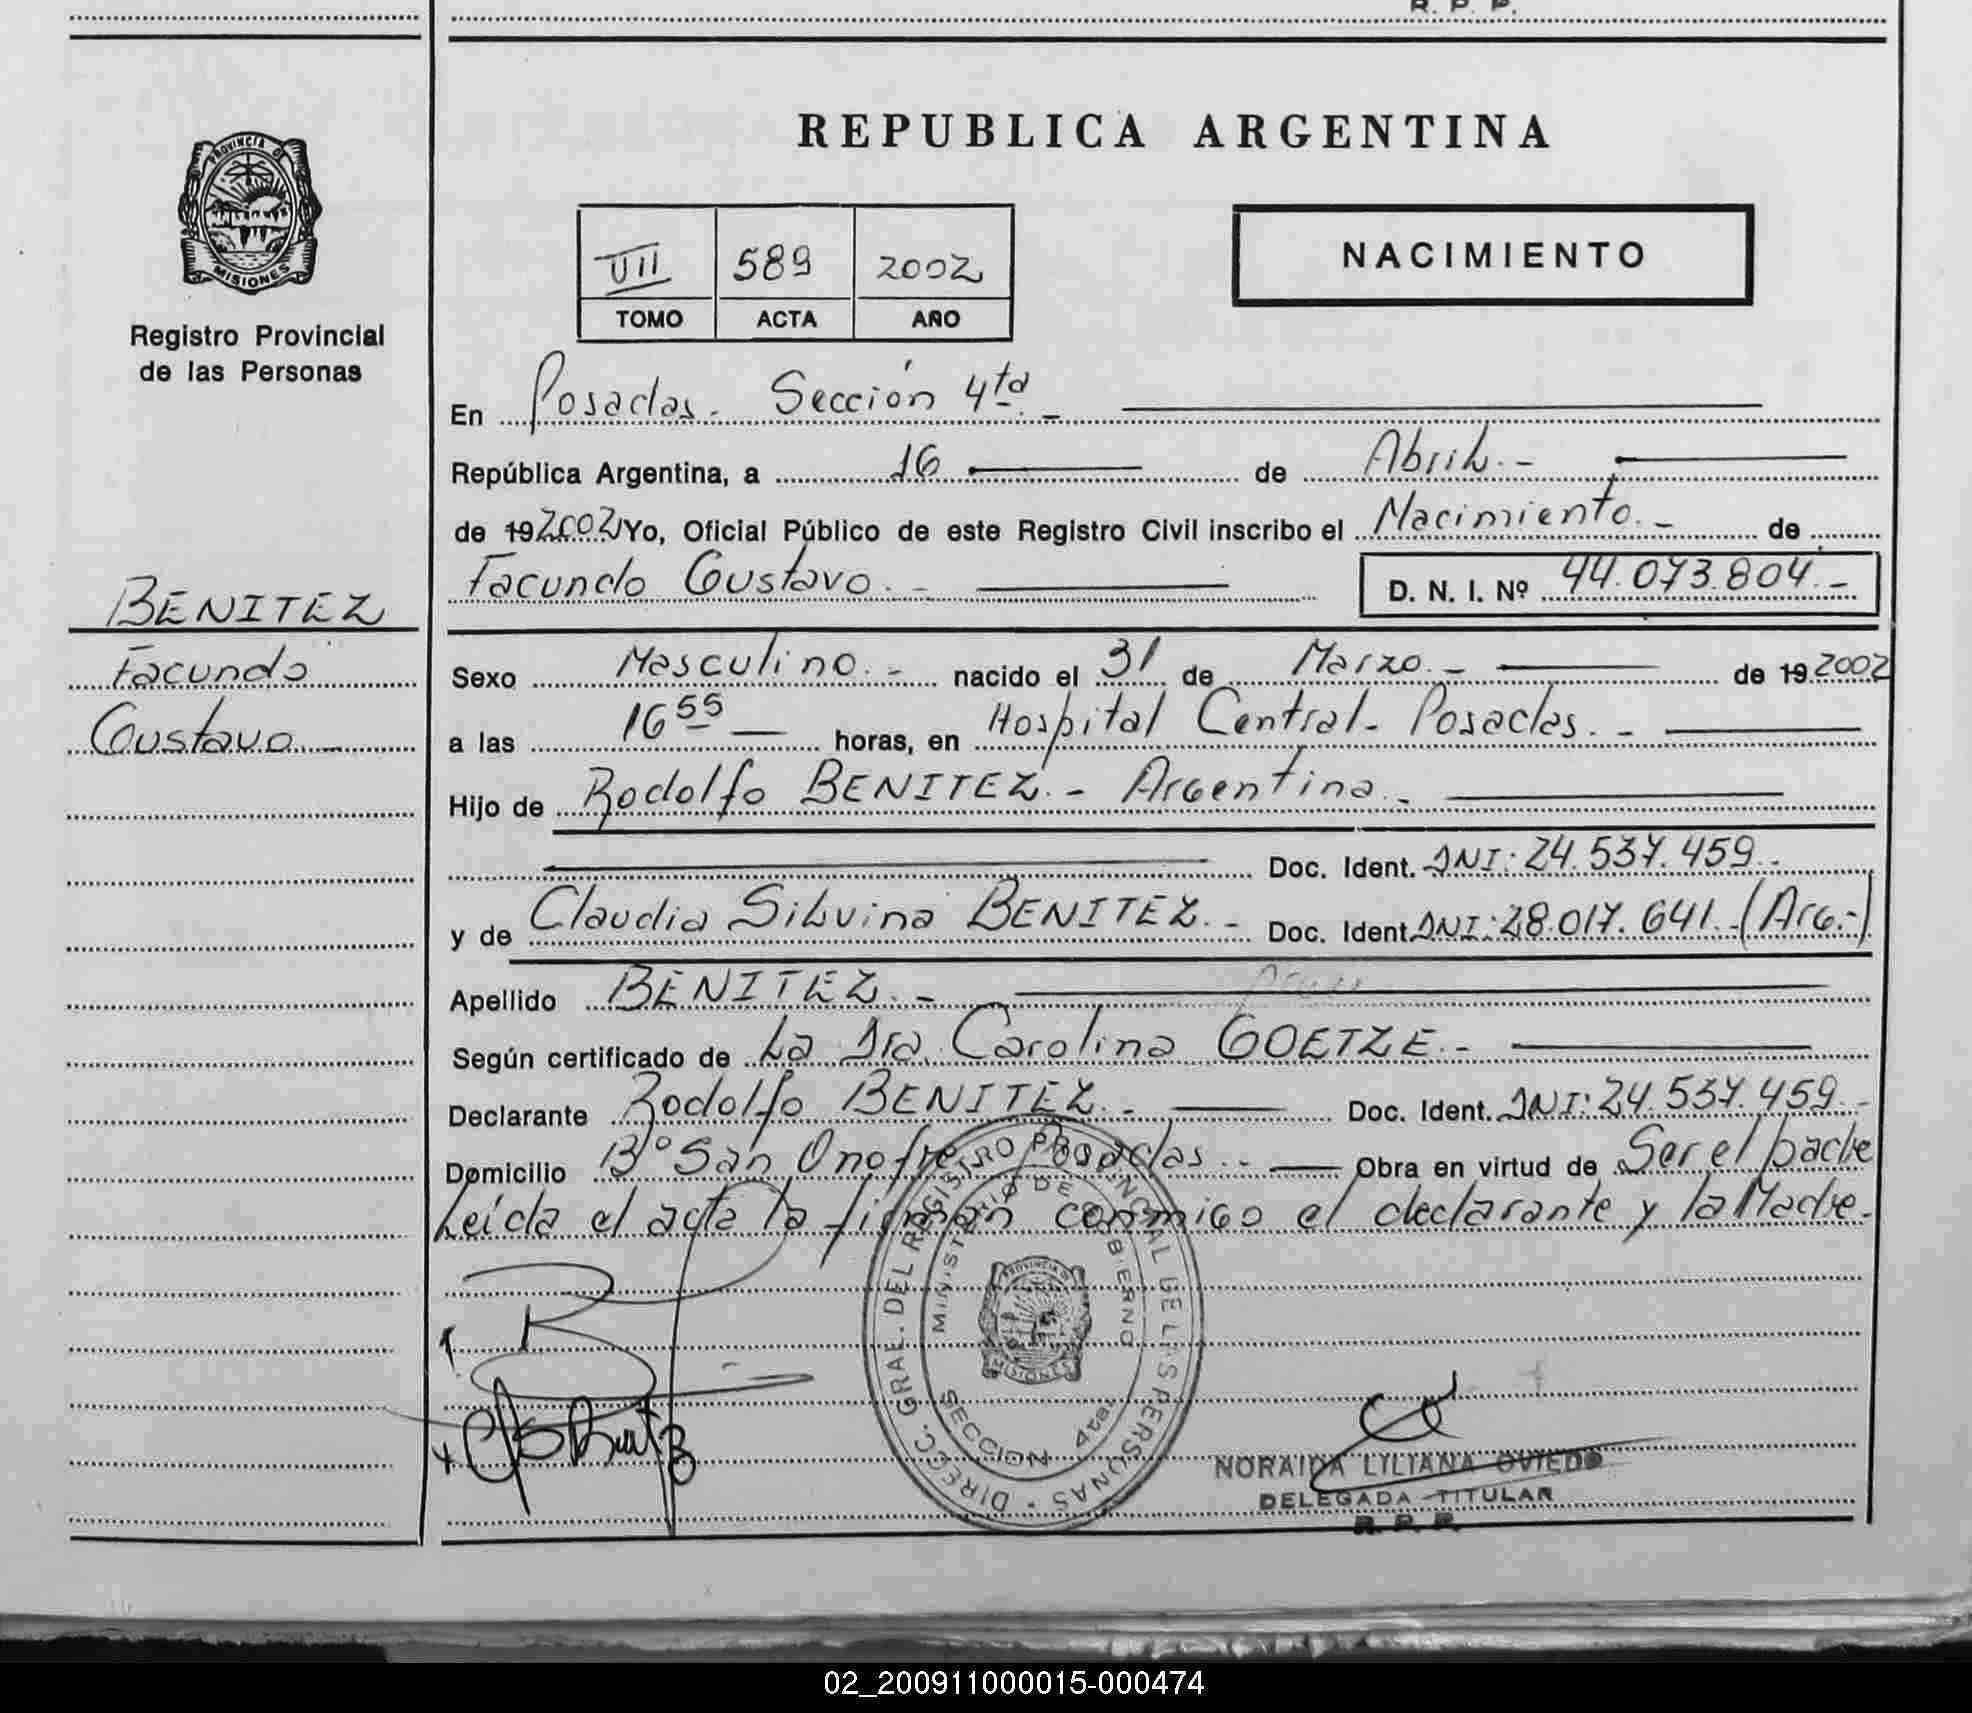 R. P. P.
REPUBLICA ARGENTINA
PROVINCIA DE
MISIONES
Registro Provincial
de las Personas
VII 589 2002
TOMO ACTA AÑO
NACIMIENTO
En Posadas. Sección 4ta.-
República Argentina, a 16 de Abril.-
de 19 2002 Yo, Oficial Público de este Registro Civil inscribo el Nacimiento.- de
Facundo Gustavo.- D. N. I. Nº 44.073.804.-
BENITEZ
Facundo
Gustavo.-
Sexo Masculino.- nacido el 31 de Marzo.- de 19 2002
a las 16 55 horas, en Hospital Central- Posadas.-
Hijo de Rodolfo BENITEZ.- Argentino.-
Doc. Ident. DNI: 24.537.459.-
y de Claudia Silvina BENITEZ.- Doc. Ident. DNI: 28.017.641.-(Arg.-)
Apellido BENITEZ.-
Según certificado de La Dra. Carolina GOETZE.-
Declarante Rodolfo BENITEZ.- Doc. Ident. DNI: 24.537.459.-
Domicilio Bº San Onofre Posadas.- Obra en virtud de Ser el padre
Leída el acta la firman conmigo el declarante y la Madre.
DIRECC. GRAL. DEL REGISTRO PROVINCIAL DE LAS PERSONAS
MINISTERIO DE GOBIERNO
PROVINCIA DE
MISIONES
SECCION 4ta.
NORAIDA LILIANA OVIEDO
DELEGADA TITULAR
R. P. P.
02_200911000015-000474